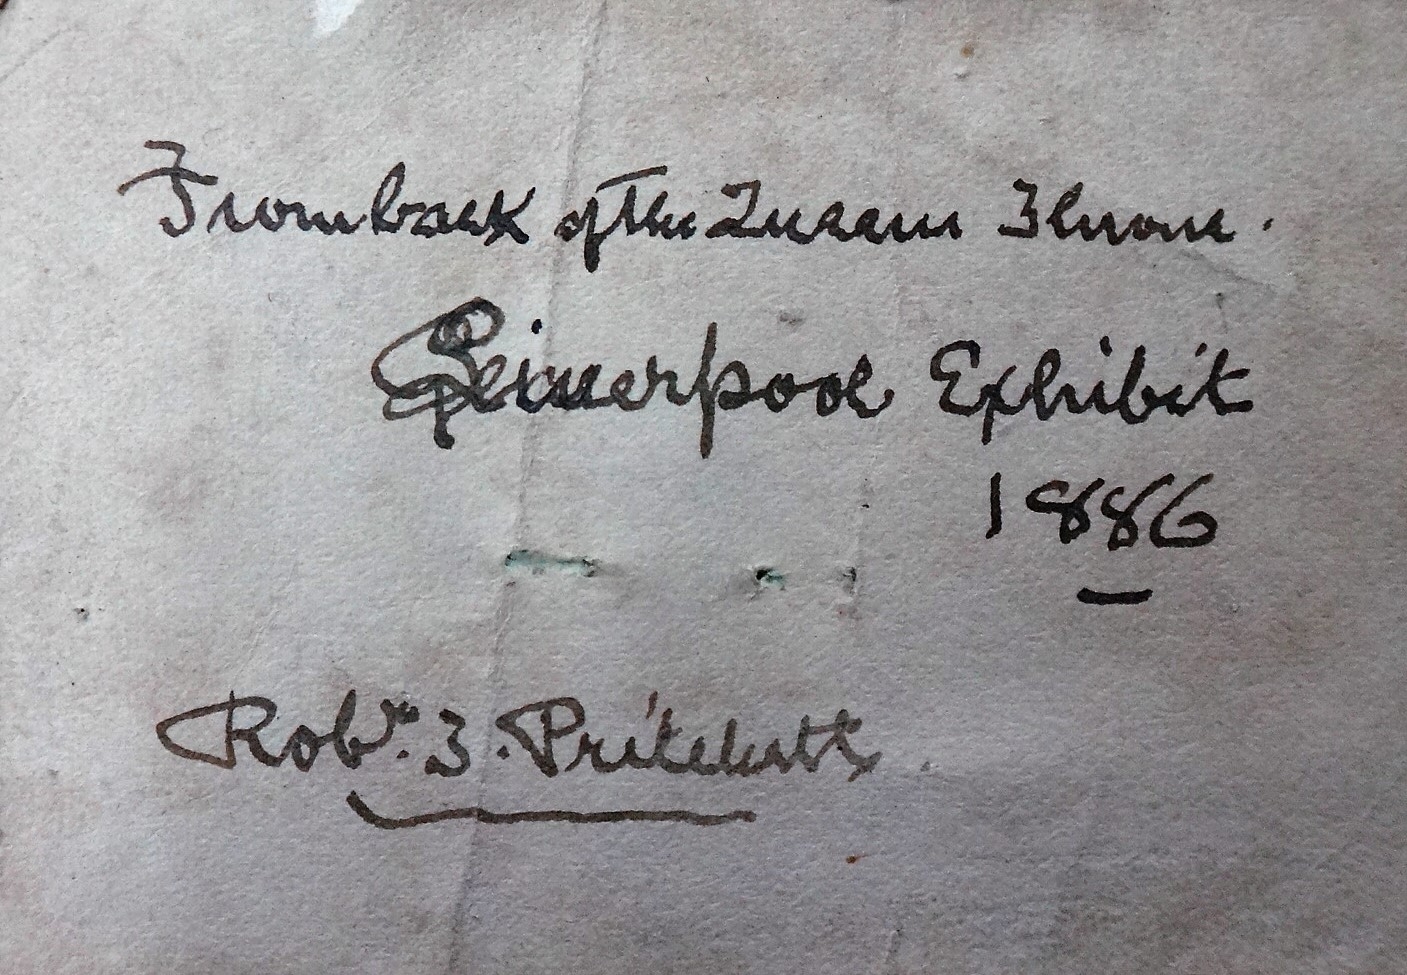 From back of the Queens Throne.
Liverpool Exhibit
1886
Robt. T. Pritchett.